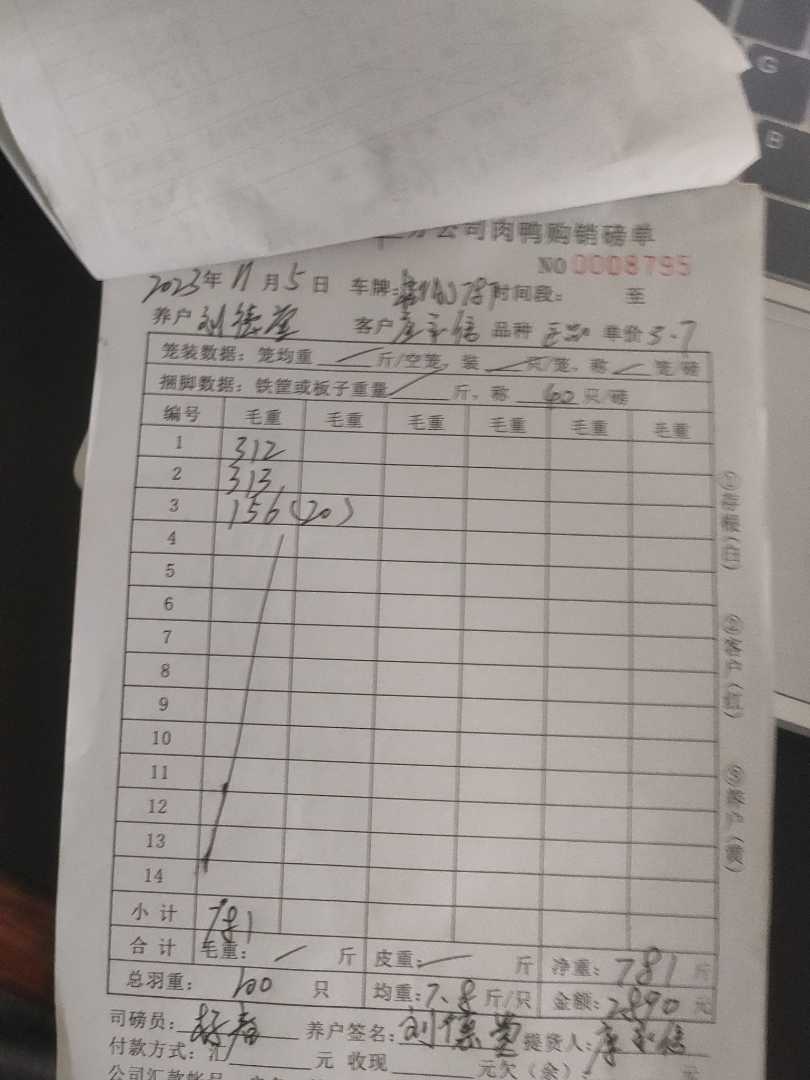 分公司肉鸭购销磅单
NO 0008795
2023年 11月 5日 车牌: 时间段: 至
养户 刘德 客户 品种 单价 3.7
笼装数据: 笼均重 斤/空笼, 装 只/笼, 称 笼/磅
捆脚数据: 铁筐或板子重量 斤, 称 40 只/磅
编号 毛重 毛重 毛重 毛重 毛重 毛重
1 312
2 313
3 156(20)
4
5
6
7
8
9
10
11
12
13
14
小计 781
合计 毛重: 斤 皮重: 斤 净重: 781 斤
总羽重: 100 只 均重: 7.8 斤/只 金额: 2890 元
司磅员: 养户签名: 刘德 提货人:
付款方式: 汇 元 收现 元欠(余): 元
①存根(白)
②客户(红)
③养户(黄)
G
B